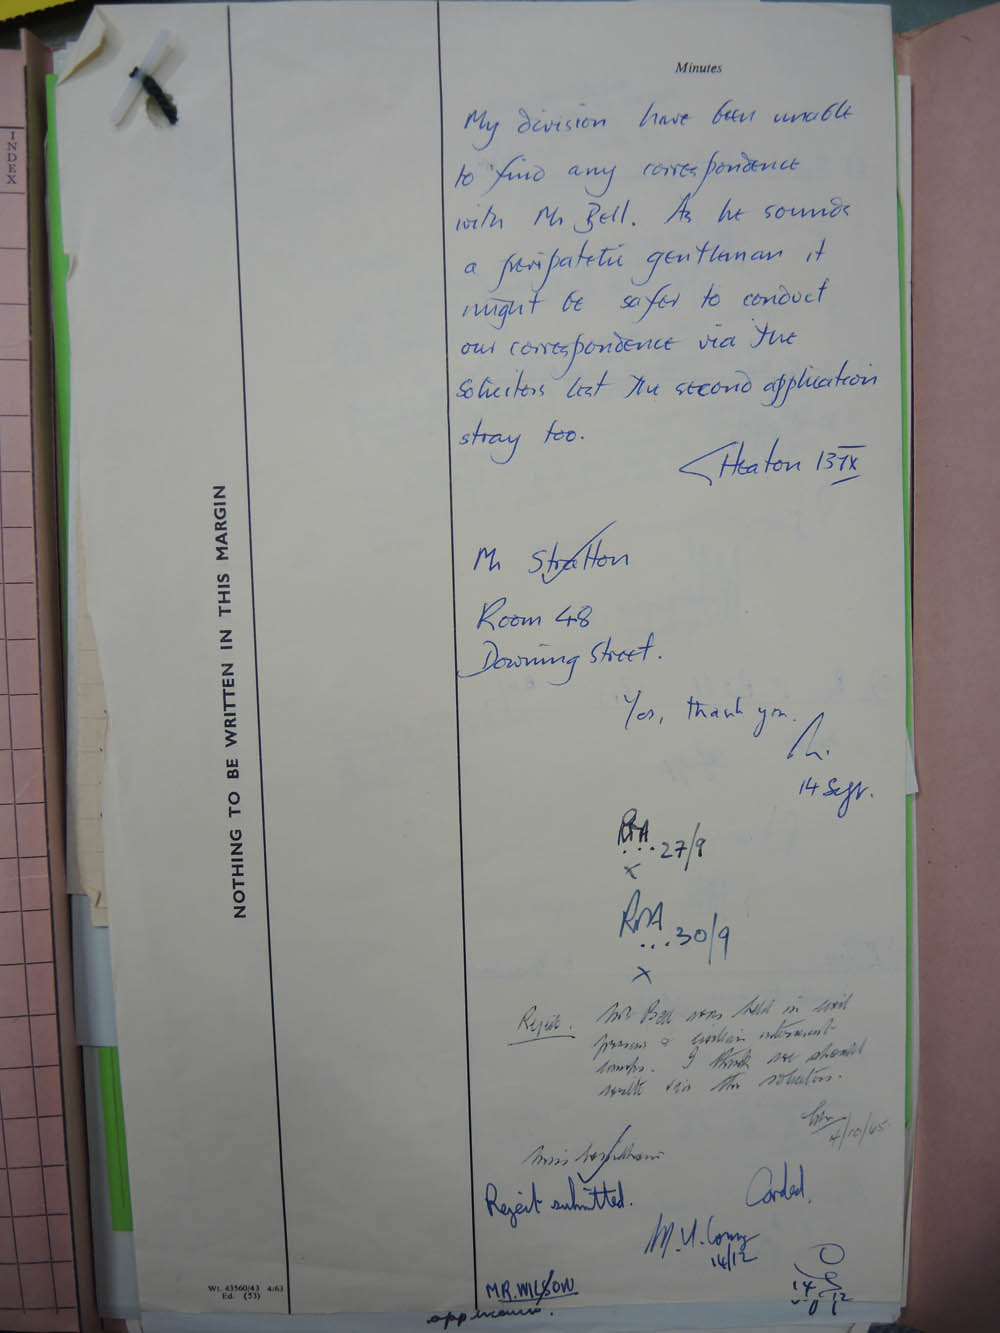 INDEX
Minutes
My division have been unable
to find any correspondence
with Mr Bell. As he sounds
a peripatetic gentleman it
might be safer to conduct
our correspondence via the
Solicitors lest the second application
stray too.
Heaton 13 IX
Mr Stratton
Room 48
Downing Street.
Yes, thank you.
14 Sept.
27/9
x
30/9
x
Reject. Mr Bell was held in civil
prisons & civilian internment
camps. I think we should
write via the solicitors.
4/10/65
Miss
Reject submitted.
Carded.
14/12
MR. WILSON
NOTHING TO BE WRITTEN IN THIS MARGIN
Wt. 43560/43 4/63
Ed. (53)